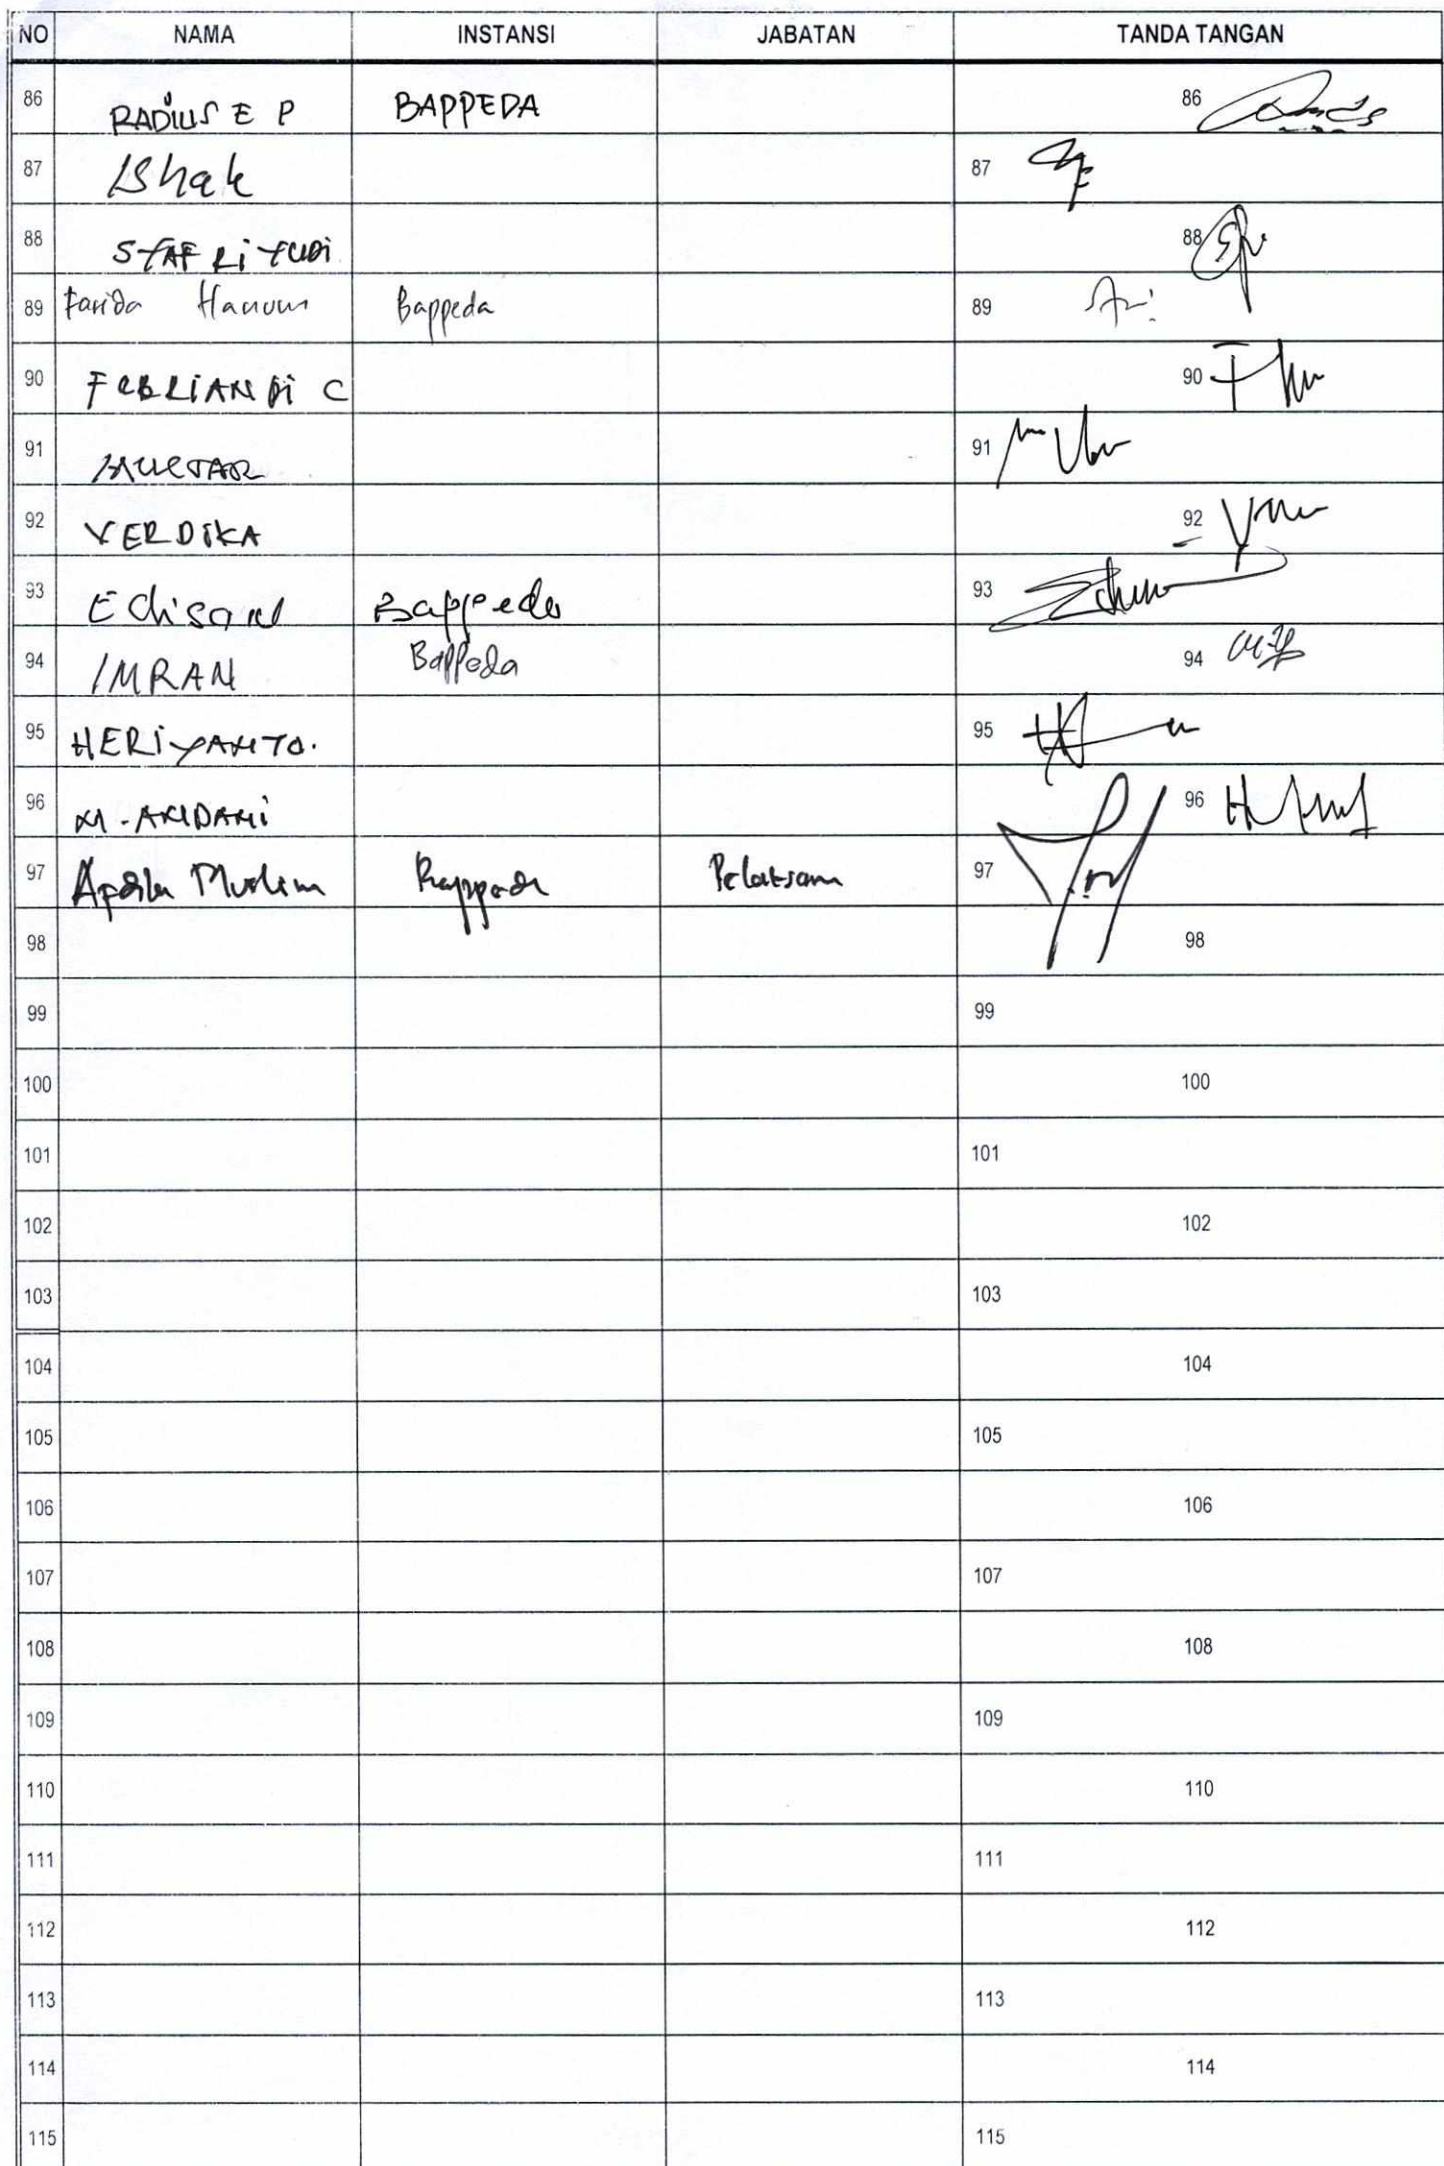 NO NAMA INSTANSI JABATAN TANDA TANGAN
86 RADIUS E P BAPPEDA 86
87 Ishak 87
88 SYAFRI YUDI 88
89 Farida Hanum Bappeda 89
90 FEBRIANDI C 90
91 MUCTAR 91
92 VERDIKA 92
93 Edison Bappeda 93
94 IMRAN Bappeda 94
95 HERIYANTO. 95
96 M. 96
97 Muslim Bappeda 97
98 98
99 99
100 100
101 101
102 102
103 103
104 104
105 105
106 106
107 107
108 108
109 109
110 110
111 111
112 112
113 113
114 114
115 115